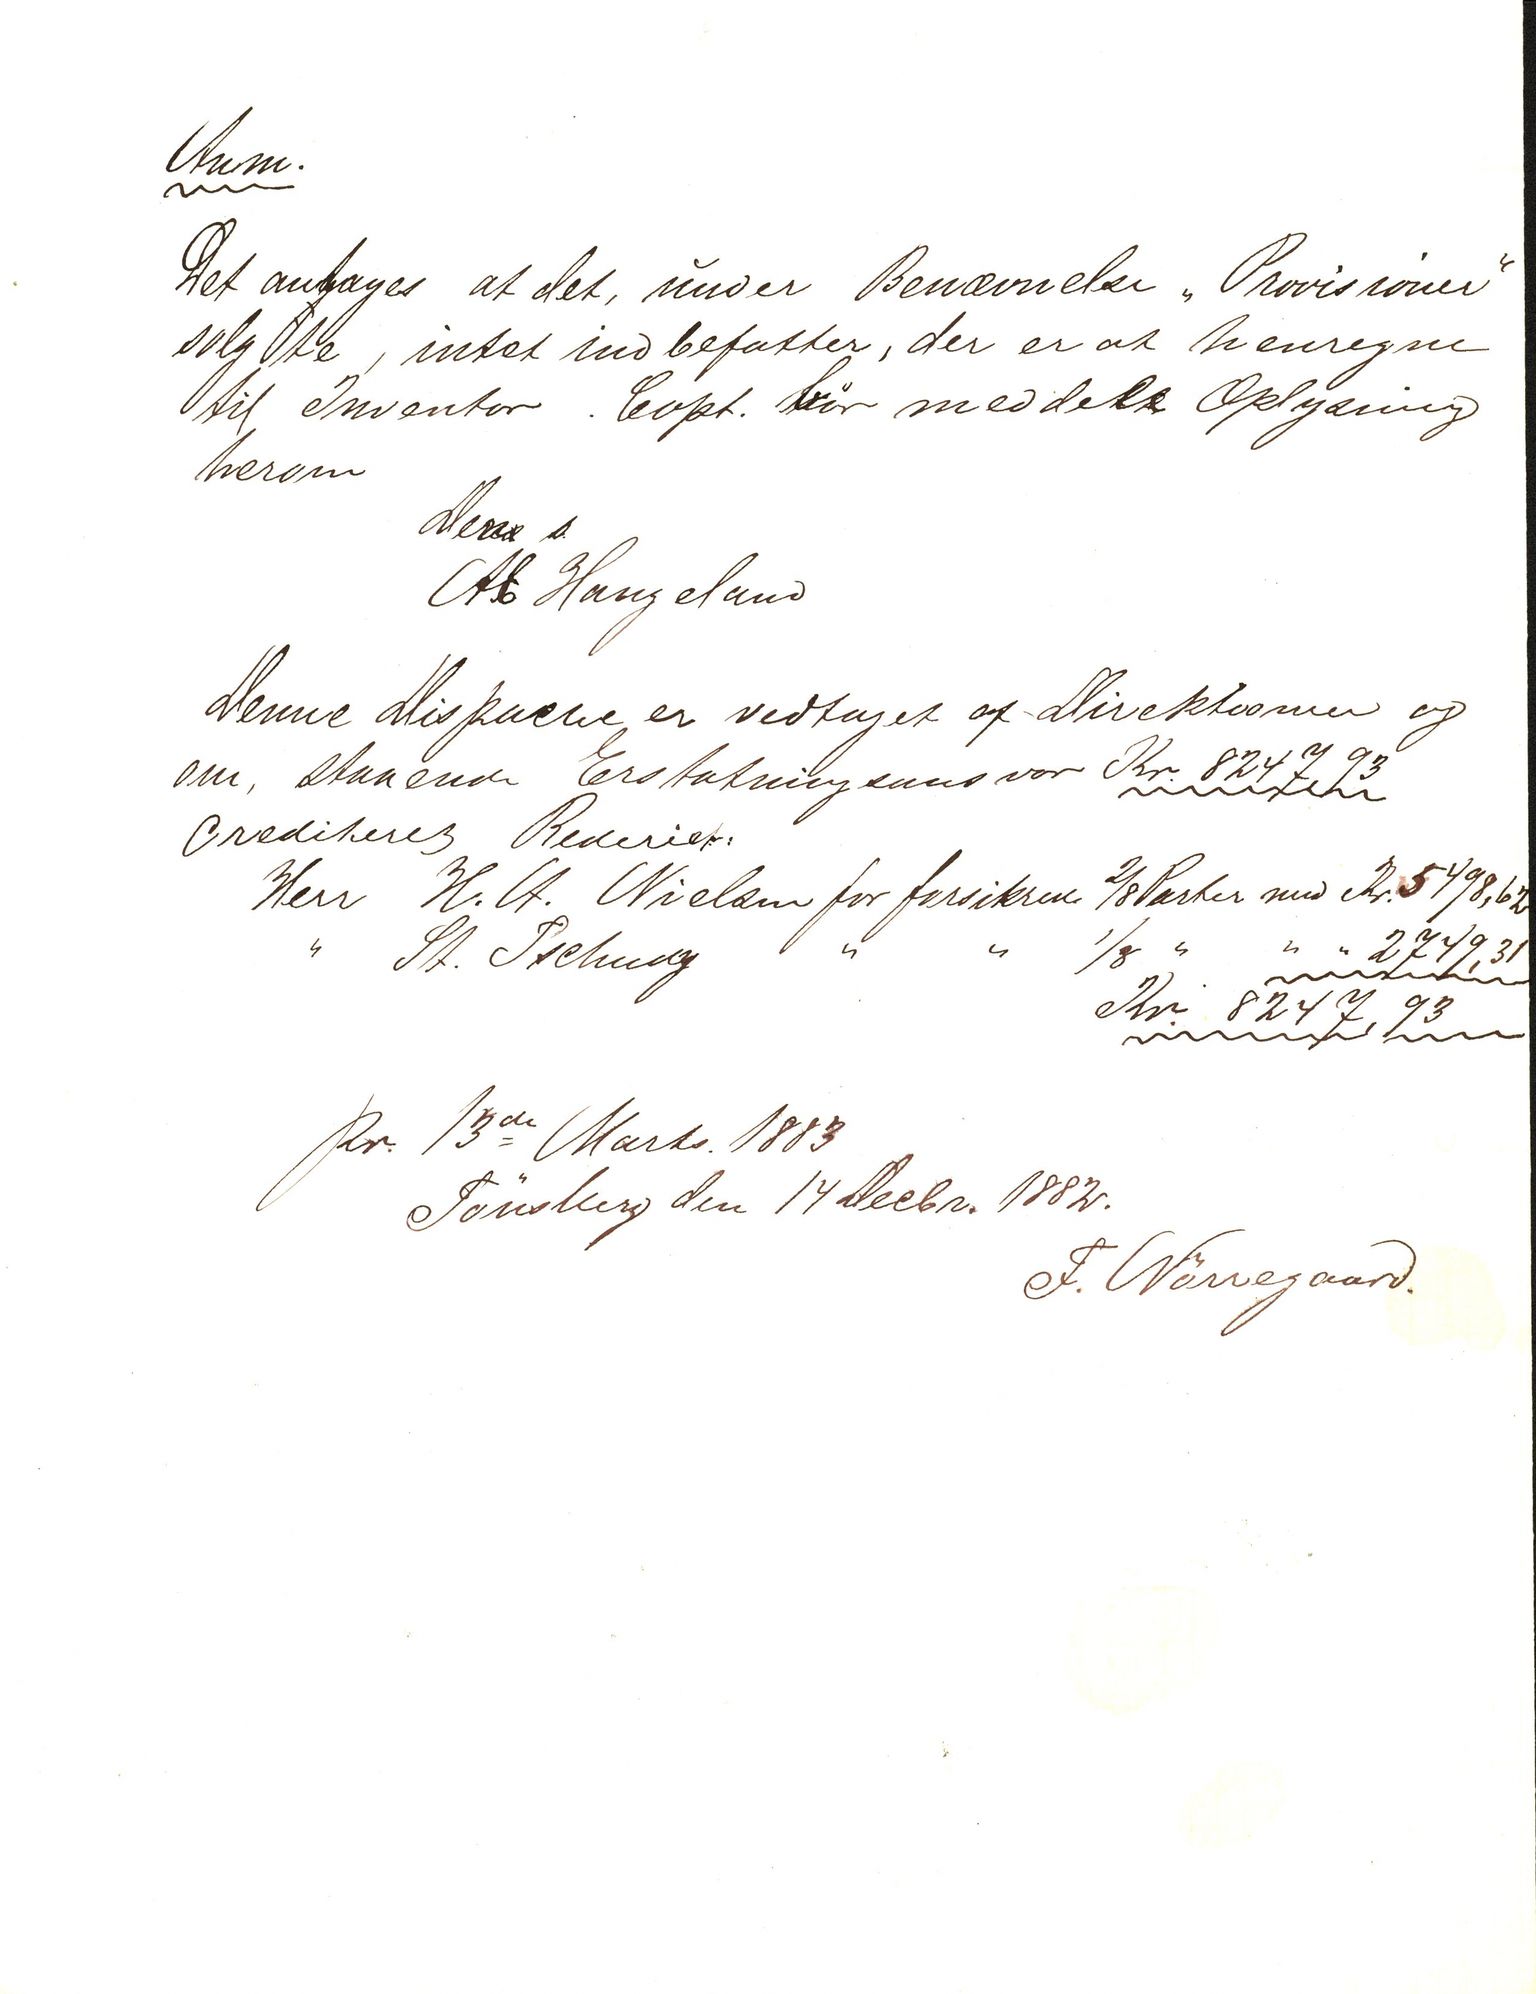 Anm.
Det antages at det, under Benævnelse „Provisioner"
solgte, intet indbefatter, der er at henregne
til Inventar. Capt. bör meddele Oplysning
herom
Deres
Ab Haugeland
Denne Dispache er vedtaget af Direktionen og
om, staaende Erstatningsansvar Kr. 8247,93
crediteres Rederiet:
Herr H. A. Nielsen for forsikrede 2/8 Parter med Kr. 5498,62
" St. Tschudy " " 1/8 " " " 2749,31
Kr. 8247,93
pr. 13de Marts. 1883
Tönsberg den 14 Decbr. 1882.
F. Nörregaard.